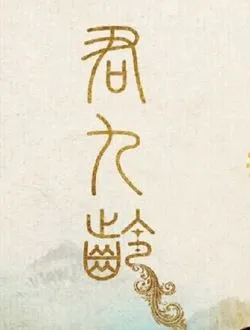 君九齡